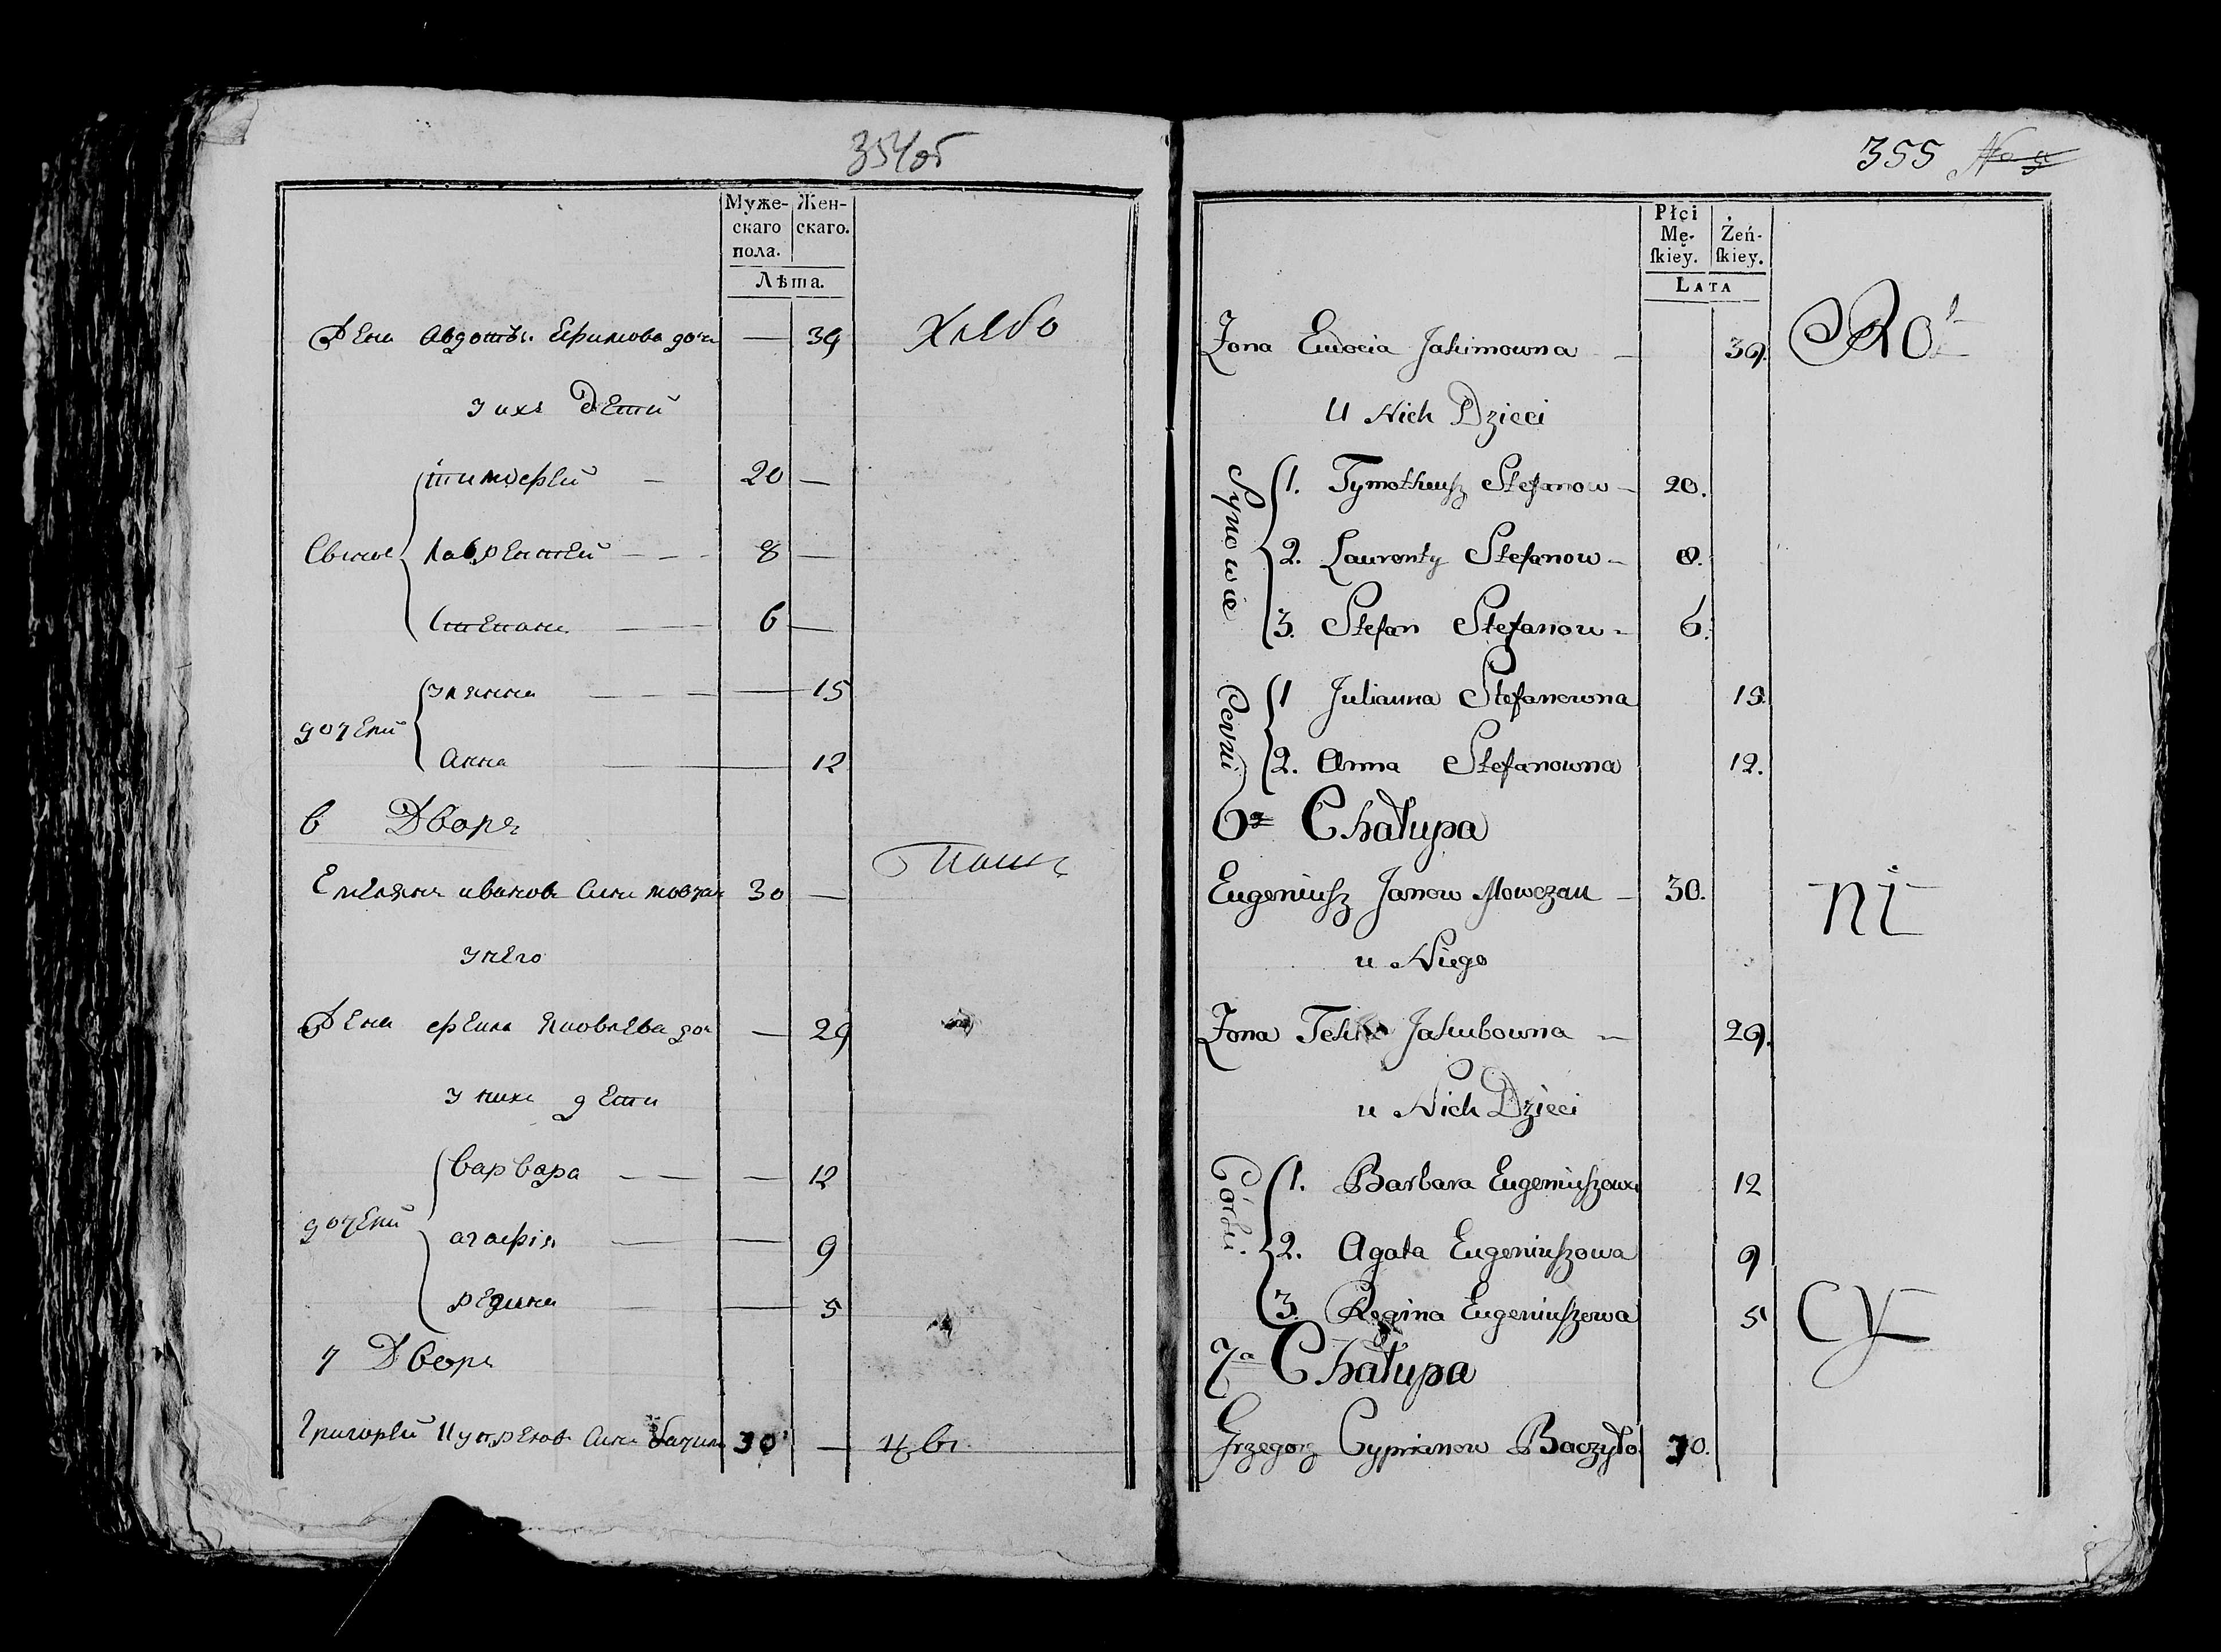 354об
Муже-
скаго
пола.
Жен-
скаго.
Лѣта.
Жена Авдотья Ефимова дочь — 39
Хлебо
у нихъ дети
Сыновe
тимофей — 20 —
Лаврентей — 8 —
Степанъ — 6 —
дочери
улянна — 15
Анна — 12
6 Дворъ
Емелянъ ивановъ синъ мовчан 30 —
Пашц
у него
Жена фекла Яковлева доч — 29
у нихъ дети
дочери
Варвара — 12
агафія — 9
регина — 5
7 Дворъ
Григорей Купреянов Синъ бачило 30 —
цы
355 No 9
Płci
Mę-
ſkiey.
Żeń-
ſkiey.
LATA
Żona Ewdocia Jakimowna — 39.
U Nich Dzieci
Synowie
1. Tymotheusz Stefanow — 20.
2. Laurenty Stefanow — 8.
3. Stefan Stefanow — 6.
Corki
1 Julianna Stefanowna 15.
2. Anna Stefanowna 12.
6a Chałupa
Eugeniusz Janow Mowczan — 30.
ni
u Niego
Żona Tekla Jakubowna — 29.
u Nich Dzieci
Córki.
1. Barbara Eugeniuszowa 12
2. Agata Eugeniuszowa 9
3. Regina Eugeniuszowa 5
7a Chałupa
Grzegorz Cyprianow Baczyło 30.